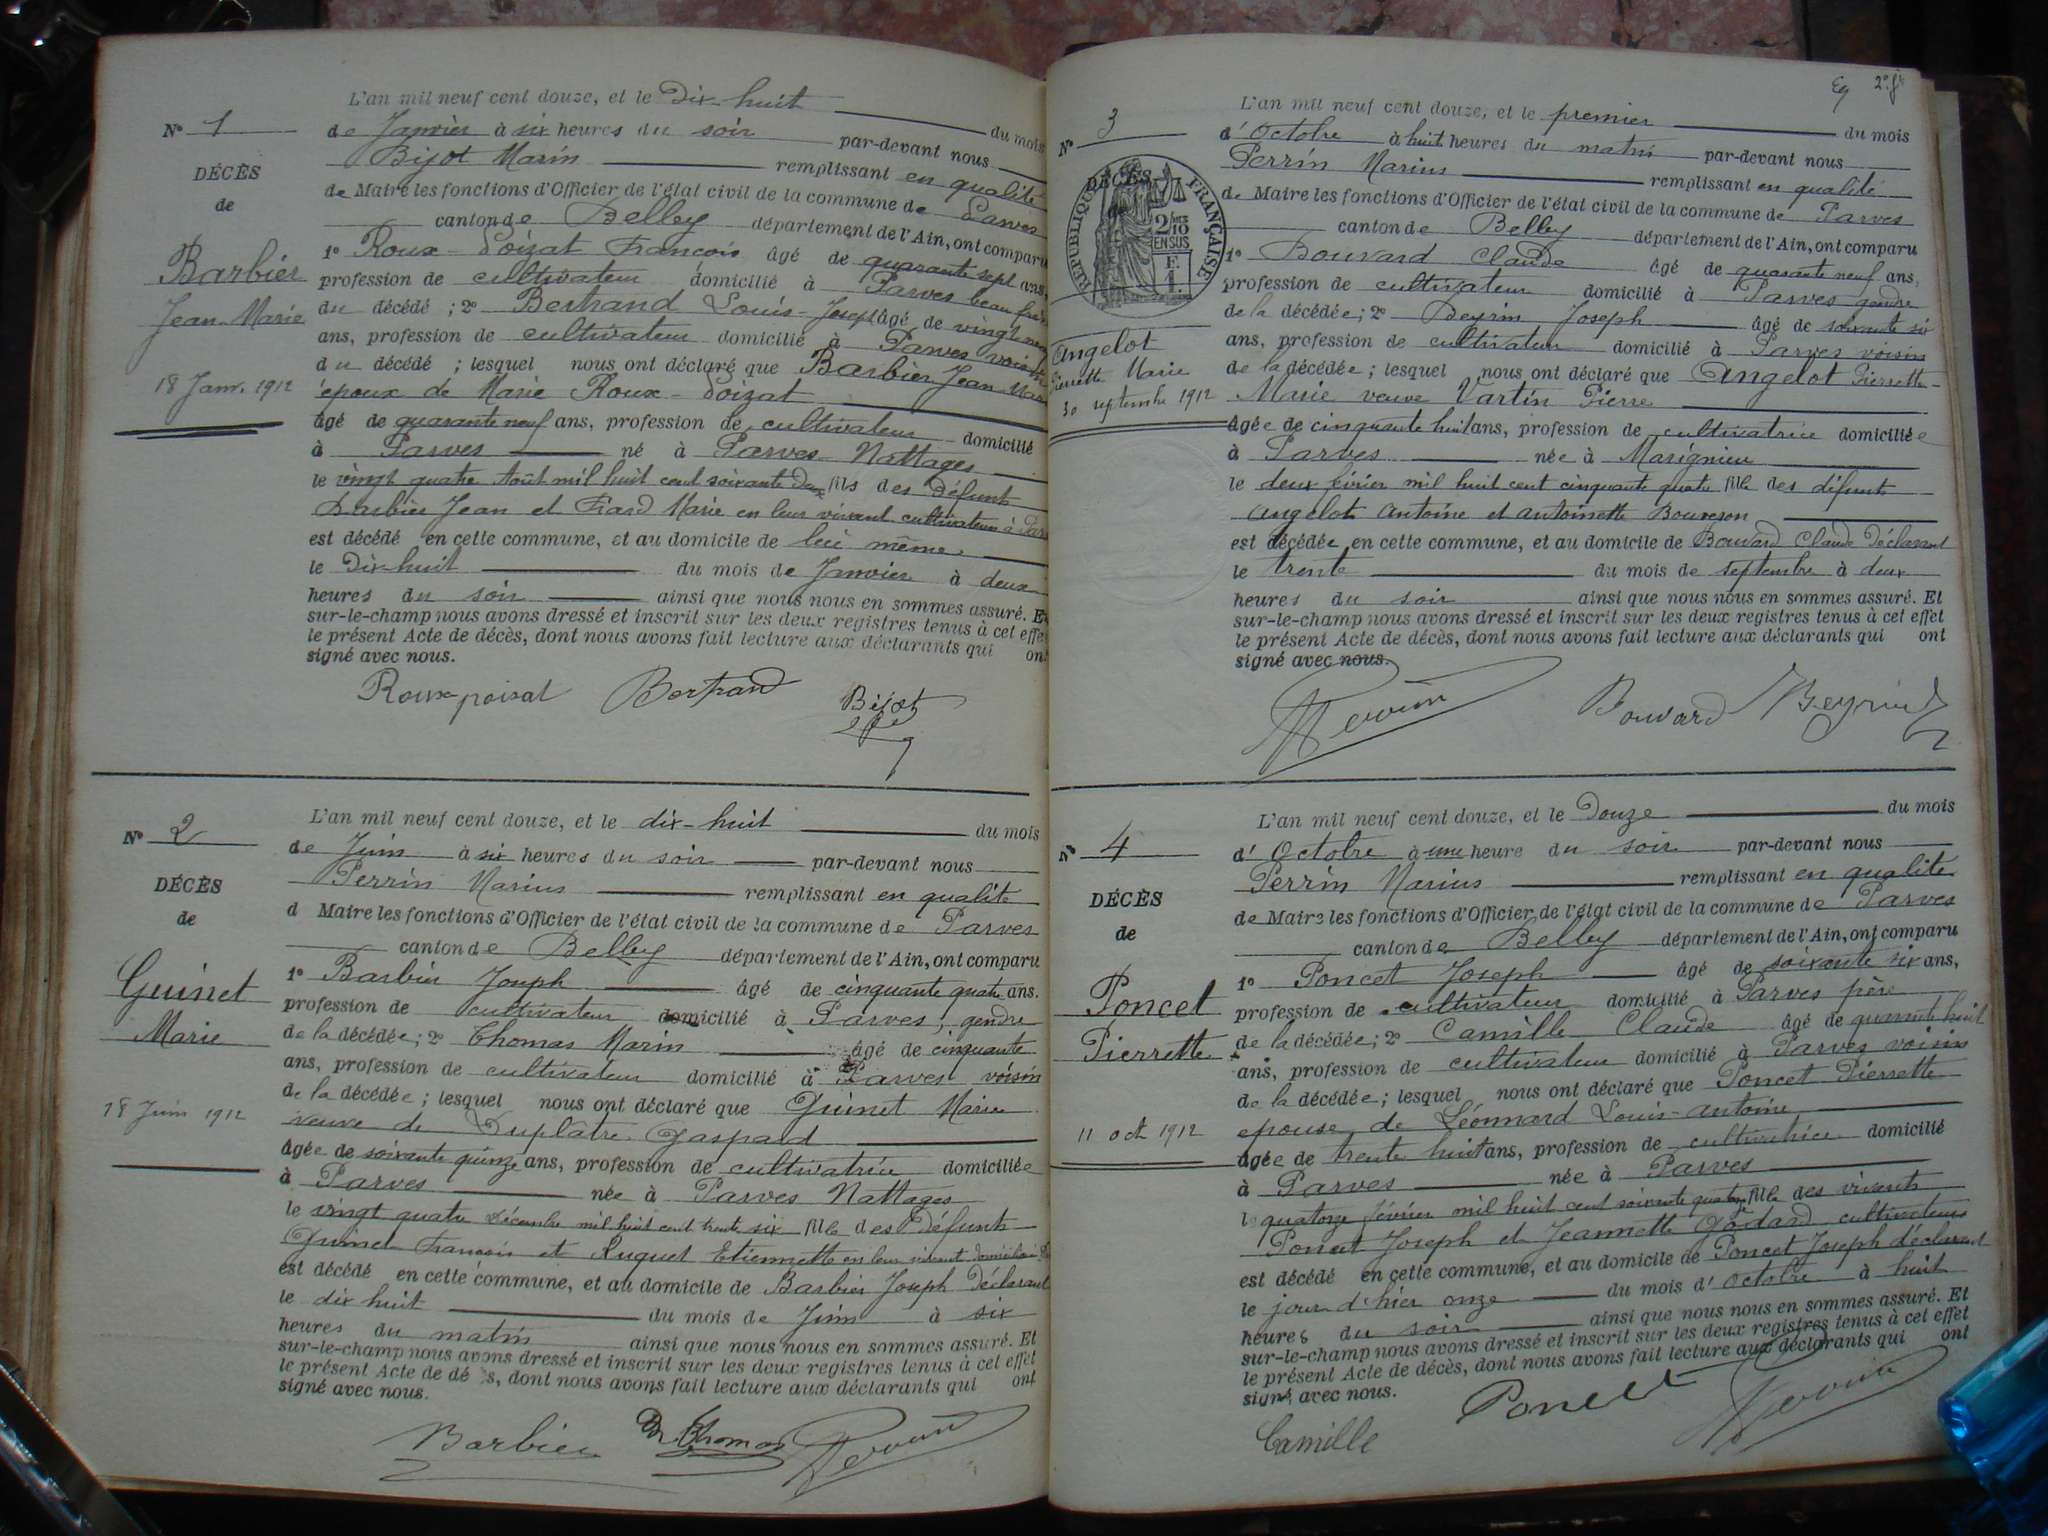 L'an mil neuf cent douze, et le Dix-huit du mois
N° 1
de Janvier à six heures du soir par-devant nous
Bijot Marin remplissant en qualité
DÉCÈS
de Maire les fonctions d'Officier de l'état civil de la commune de Parves
de
canton de Belley département de l'Ain, ont comparu
1° Roux-Poizat François âgé de quarante sept ans,
Barbier
profession de cultivateur domicilié à Parves beau frère
Jean-Marie
du décédé ; 2° Bertrand Louis-Joseph âgé de vingt
ans, profession de cultivateur domicilié à Parves voisin
du décédé ; lesquel nous ont déclaré que Barbier Jean Marie
18 Janv. 1912
époux de Marie Roux-Poizat
âgé de quarante neuf ans, profession de cultivateur domicilié
à Parves né à Parves-Nattages
le vingt quatre Août mil huit cent soixante deux fils des défunts
Barbier Jean et Fiard Marie en leur vivant cultivateurs à
est décédé en cette commune, et au domicile de lui même
le Dix-huit du mois de Janvier à deux
heures du soir ainsi que nous nous en sommes assuré. Et
sur-le-champ nous avons dressé et inscrit sur les deux registres tenus à cet effet
le présent Acte de décès, dont nous avons fait lecture aux déclarants qui ont
signé avec nous.
Roux-poizat Bertrand Bijot
L'an mil neuf cent douze, et le dix-huit du mois
N° 2
de Juin à six heures du soir par-devant nous
Perrin Marius remplissant en qualité
DÉCÈS
d Maire les fonctions d'Officier de l'état civil de la commune de Parves
de
canton de Belley département de l'Ain, ont comparu
1° Barbier Joseph âgé de cinquante quatre ans.
Guinet
profession de cultivateur domicilié à Parves, gendre
Marie
de la décédée ; 2° Thomas Marin âgé de cinquante
ans, profession de cultivateur domicilié à Parves voisin
de la décédée ; lesquel nous ont déclaré que Guinet Marie
18 Juin 1912
veuve de Duplâtre Gaspard
âgée de soixante quinze ans, profession de cultivatrice domiciliée
à Parves née à Parves Nattages
le vingt quatre décembre mil huit cent trente six fille des Défunts
Guinet François et Ruguet Etiennette en leur vivant domiciliés
est décédé en cette commune, et au domicile de Barbier Joseph Déclarant
le dix huit du mois de Juin à six
heures du matin ainsi que nous nous en sommes assuré. Et
sur-le-champ nous avons dressé et inscrit sur les deux registres tenus à cet effet
le présent Acte de décès, dont nous avons fait lecture aux déclarants qui ont
signé avec nous.
Barbier Thomas Perrin
2e
L'an mil neuf cent douze, et le premier du mois
N° 3
d'Octobre à huit heures du matin par-devant nous
Perrin Marius remplissant en qualité
DÉCÈS
de
RÉPUBLIQUE FRANÇAISE
2/10 EN SUS
F. 1.
de Maire les fonctions d'Officier de l'état civil de la commune de Parves
canton de Belley département de l'Ain, ont comparu
1° Bouvard Claude âgé de quarante neuf ans,
profession de cultivateur domicilié à Parves gendre
de la décédée ; 2° Beyrin Joseph âgé de soixante six
Angelot
ans, profession de cultivateur domicilié à Parves voisin
Pierrette Marie
de la décédée ; lesquel nous ont déclaré que Angelot Pierrette-
30 septembre 1912
Marie veuve Vartin Pierre
âgée de cinquante huit ans, profession de cultivatrice domiciliée
à Parves née à Marignieu
le deux février mil huit cent cinquante quatre fille des défunts
Angelot Antoine et Antoinette
est décédée en cette commune, et au domicile de Bouvard Claude Déclarant
le trente du mois de septembre à deux
heures du soir ainsi que nous nous en sommes assuré. Et
sur-le-champ nous avons dressé et inscrit sur les deux registres tenus à cet effet
le présent Acte de décès, dont nous avons fait lecture aux déclarants qui ont
signé avec nous.
Perrin Bouvard Beyrin
L'an mil neuf cent douze, et le Douze du mois
N° 4
d'Octobre à une heure du soir par-devant nous
Perrin Marius remplissant en qualité
DÉCÈS
de Maire les fonctions d'Officier de l'état civil de la commune de Parves
de
canton de Belley département de l'Ain, ont comparu
1° Poncet Joseph âgé de soixante six ans,
Poncet
profession de cultivateur domicilié à Parves père
Pierrette
de la décédée ; 2° Camille Claude âgé de quarante huit
ans, profession de cultivateur domicilié à Parves voisin
de la décédée ; lesquel nous ont déclaré que Poncet Pierrette
11 oct 1912
epouse de Léonnard Louis-Antoine
âgée de trente huit ans, profession de cultivatrice domicilié
à Parves née à Parves
le quatorze février mil huit cent soixante quatorze fille des vivants
Poncet Joseph et Jeannette Godard cultivateurs
est décédé en cette commune, et au domicile de Poncet Joseph déclarant
le jour d'hier onze du mois d'octobre à huit
heures du soir ainsi que nous nous en sommes assuré. Et
sur-le-champ nous avons dressé et inscrit sur les deux registres tenus à cet effet
le présent Acte de décès, dont nous avons fait lecture aux déclarants qui ont
signé avec nous.
Camille Poncet Perrin